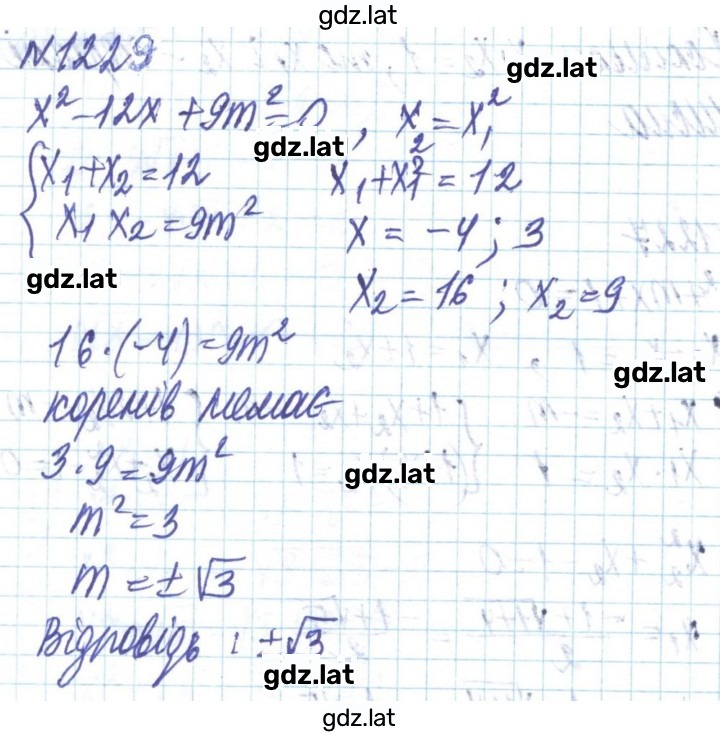 gdz.lat
№1229
gdz.lat
x² - 12x + 9m² = 0, x₂ = x₁²
gdz.lat
{x₁ + x₂ = 12
x₁ x₂ = 9m²
x₁ + x₁² = 12
x = -4; 3
gdz.lat
x₂ = 16; x₂ = 9
16 · (-4) = 9m²
gdz.lat
коренів немає
3 · 9 = 9m²
gdz.lat
m² = 3
m = ±√3
Відповідь: ±√3
gdz.lat
gdz.lat